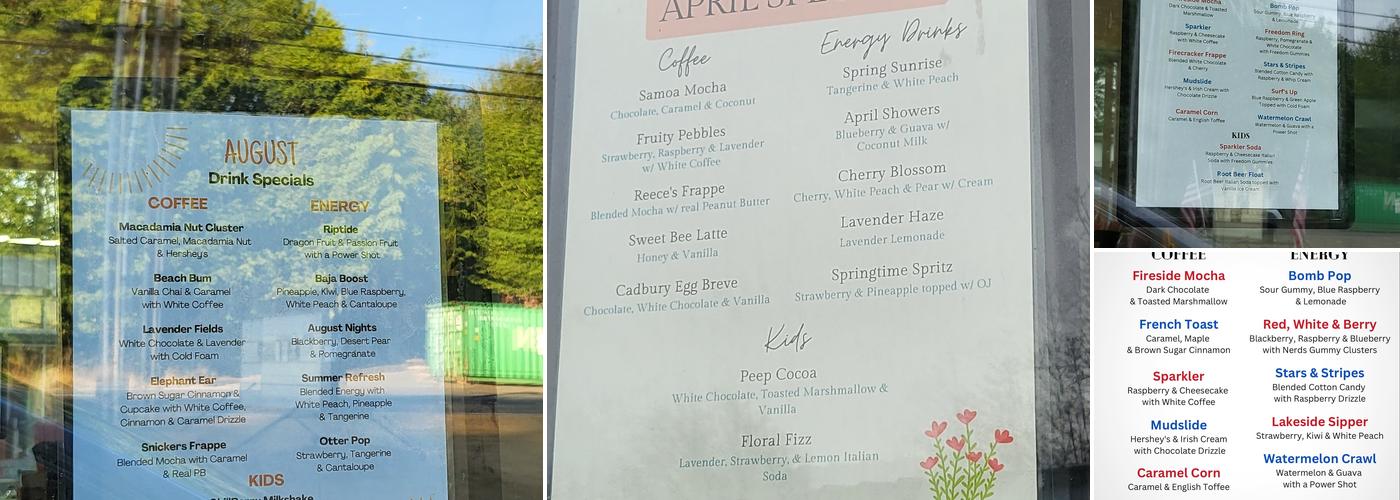 AUGUST
Drink Specials
COFFEE
Macadamia Nut Cluster
Salted Caramel, Macadamia Nut
& Hershey's
Beach Bum
Vanilla Chai & Caramel
with White Coffee
Lavender Fields
White Chocolate & Lavender
with Cold Foam
Elephant Ear
Brown Sugar Cinnamon &
Cupcake with White Coffee,
Cinnamon & Caramel Drizzle
Snickers Frappe
Blended Mocha with Caramel
& Real PB
ENERGY
Riptide
Dragon Fruit & Passion Fruit
with a Power Shot
Baja Boost
Pineapple, Kiwi, Blue Raspberry,
White Peach & Cantaloupe
August Nights
Blackberry, Desert Pear
& Pomegranate
Summer Refresh
Blended Energy with
White Peach, Pineapple
& Tangerine
Otter Pop
Strawberry, Tangerine
& Cantaloupe
KIDS
Milkshake
APRIL
Coffee
Samoa Mocha
Chocolate, Caramel & Coconut
Fruity Pebbles
Strawberry, Raspberry & Lavender
w/ White Coffee
Reece's Frappe
Blended Mocha w/ real Peanut Butter
Sweet Bee Latte
Honey & Vanilla
Cadbury Egg Breve
Chocolate, White Chocolate & Vanilla
Energy Drinks
Spring Sunrise
Tangerine & White Peach
April Showers
Blueberry & Guava w/
Coconut Milk
Cherry Blossom
Cherry, White Peach & Pear w/ Cream
Lavender Haze
Lavender Lemonade
Springtime Spritz
Strawberry & Pineapple topped w/ OJ
Kids
Peep Cocoa
White Chocolate, Toasted Marshmallow &
Vanilla
Floral Fizz
Lavender, Strawberry, & Lemon Italian
Soda
Fireside Mocha
Dark Chocolate & Toasted
Marshmallow
Sparkler
Raspberry & Cheesecake
with White Coffee
Firecracker Frappe
Blended White Chocolate
& Cherry
Mudslide
Hershey's & Irish Cream with
Chocolate Drizzle
Caramel Corn
Caramel & English Toffee
Bomb Pop
Sour Gummy, Blue Raspberry
& Lemonade
Freedom Ring
Raspberry, Pomegranate &
White Chocolate
with Freedom Gummies
Stars & Stripes
Blended Cotton Candy with
Raspberry & Whip Cream
Surf's Up
Blue Raspberry & Green Apple
Topped with Cold Foam
Watermelon Crawl
Watermelon & Guava with a
Power Shot
KIDS
Sparkler Soda
Raspberry & Cheesecake Italian
Soda with Freedom Gummies
Root Beer Float
Root Beer Italian Soda topped with
Vanilla Ice Cream
COFFEE
Fireside Mocha
Dark Chocolate
& Toasted Marshmallow
French Toast
Caramel, Maple
& Brown Sugar Cinnamon
Sparkler
Raspberry & Cheesecake
with White Coffee
Mudslide
Hershey's & Irish Cream
with Chocolate Drizzle
Caramel Corn
Caramel & English Toffee
ENERGY
Bomb Pop
Sour Gummy, Blue Raspberry
& Lemonade
Red, White & Berry
Blackberry, Raspberry & Blueberry
with Nerds Gummy Clusters
Stars & Stripes
Blended Cotton Candy
with Raspberry Drizzle
Lakeside Sipper
Strawberry, Kiwi & White Peach
Watermelon Crawl
Watermelon & Guava
with a Power Shot